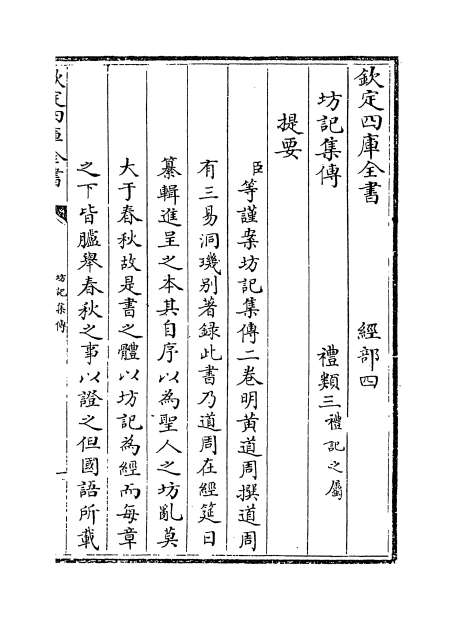 欽定四庫全書　經部四
坊記集傳　禮類三禮記之屬
提要
臣等謹案坊記集傳二卷明黃道周撰道周
有三易洞璣别著録此書乃道周在經筵日
纂輯進呈之本其自序以為聖人之坊亂莫
大于春秋故是書之體以坊記為經而每章
之下皆臚舉春秋之事以證之但國語所載
欽定四庫全書
坊記集傳
一